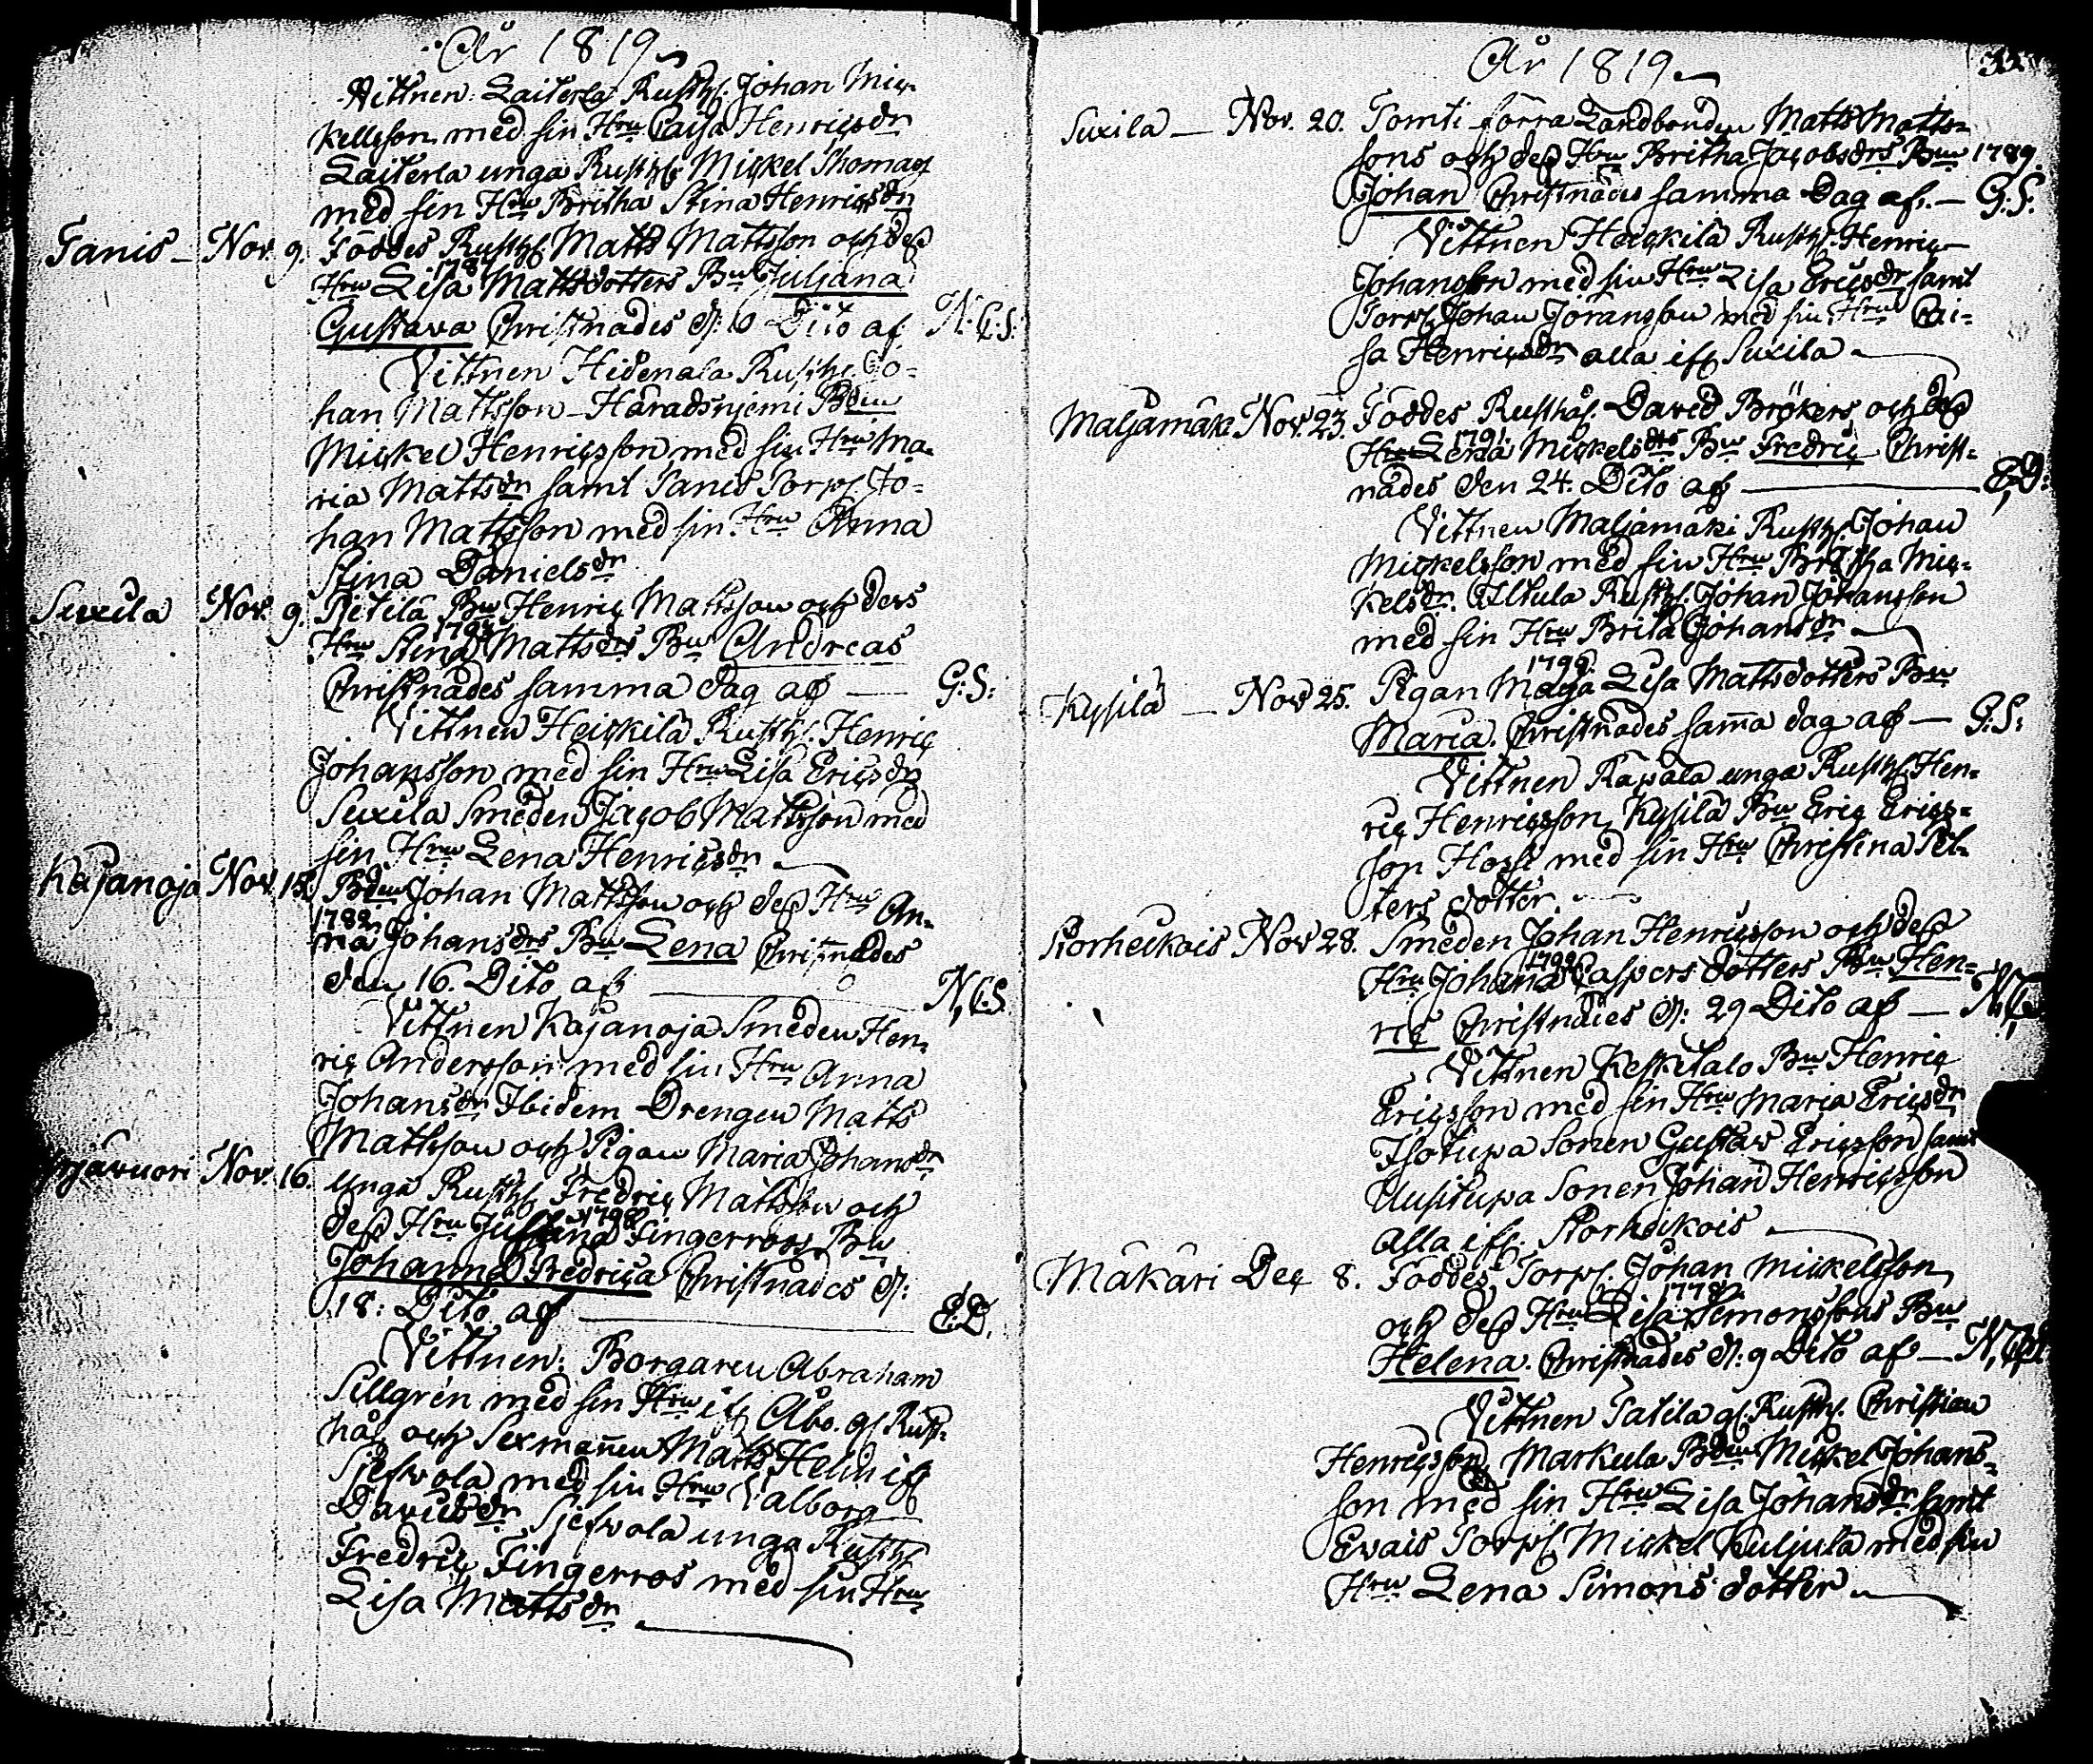 År 1819
Vittnen: Laiterla Rusth. Johan Mic-
kelsson med sin Hru Caisa Henricsdr
Laiterla unga Rusth. Mickel Thomas
med sin Hru Britha Stina Henricsdr
Tanis Nov. 9. Föddes Rusth. Matts Mattsson och dess
Hru Lisa Mattsdotters Bn Juliana
Gustava Christnades d: 10 Dito af N.C.S.
Vittnen Hidenala Rusth. Jo-
han Mattsson Häradsnjemi Bden
Mickel Henricsson med sin Hru Ma-
ria Mattsdr samt Tanis Torp. Jo-
han Mattsson med sin Hru Anna
Stina Danielsdr
Suxila Nov. 9. Pietilä Bn Henric Mattsson och ders
Hru Stina Mattsdrs Bn Andreas
Christnades samma dag af G:S:
Vittnen Heickilä Rusth. Henric
Johansson med sin Hru Lisa Ericsdr
Suxila Smeden Jacob Mattsson med
sin Hru Lena Henricsdr
Kajanoja Nov. 15. Bden Johan Mattsson och dess Hru An-
1782
na Johansdrs Bn Lena Christnades
den 16. Dito af N.C.S.
Vittnen Kajanoja Smeden Hen-
ric Andersson med sin Hru Anna
Johansdr Ibidem Drengen Matts
Mattsson och Pigan Maria Johansdr
Nov. 16. Unga Rusth. Fredric Mattsson och
dess Hru Justina Fingerroos Bn
Johanna Fredrica Christnades d:
18: Dito af E.D.
Vittnen: Borgaren Abraham
Sillgren med sin Hru if Åbo. gl Rust-
hål och Sexmannen Matts Helin if
Sjefvola med sin Hru Valborg
Davidsdr Sjefvola unga Rusth.
Fredric Fingerros med sin Hru
Lisa Mattsdr
År 1819
Suxila Nov. 20. Tomti förra Landbonden Matts Matts-
sons och dess Hru Britha Jacobsdrs Bn 1789.
Johan Christnades samma Dag af. G.S.
Vittnen Heickilä Rusth. Henric
Johansson med sin Hru Lisa Ericsdr samt
Torp. Johan Joransson med sin Hru Cai-
sa Henricsdr alla if Suxila
Maljamäki Nov. 23. Föddes Rusthål. David Brökers och dess
1791.
Hru Lena Mickelsdrs Bn Fredric Christ-
nades den 24. Dito af E.D:
Vittnen Maljamäki Rusth. Johan
Mickelsson med sin Hru Britha Mic-
kelsdr. Iltula Rusth. Johan Johansson
med sin Hru Brita Johansdr
1799.
Kysilä Nov 25. Pigan Maja Lisa Mattsdotters Bn
Maria. Christnades sama dag af G.S:
Vittnen Rawala unga Rusth. Hen-
ric Henricsson, Kysilä Bn Eric Erics-
son Hossi med sin Hru Christina Pet-
ters dotter.
Storheikois Nov 28. Smeden Johan Henricsson och dess
Hru Johana Caspers dotters Bn Hen-
ric Christnades d: 29 Dito af
Vittnen Keskitalo Bn Henric
Ericsson med sin Hru Maria Ericsdr
Isotupa Sonen Gustav Ericsson samt
Uusitupa Sonen Johan Henricsson
Alla if. Storheikois
Makari Dec 8. Föddes Torp. Johan Mickelsson
1778.
och dess Hru Lisa Simonssons Bn
Helena. Christnades d: 9 Dito af
Vittnen Tatila gl. Rusth. Christian
Henricsson, Markula Bden Mickel Johans-
son med sin Hru Lisa Johansdr samt
Evais Torp. Mickel Kuljula med sin
Hru Lena Simons dotter